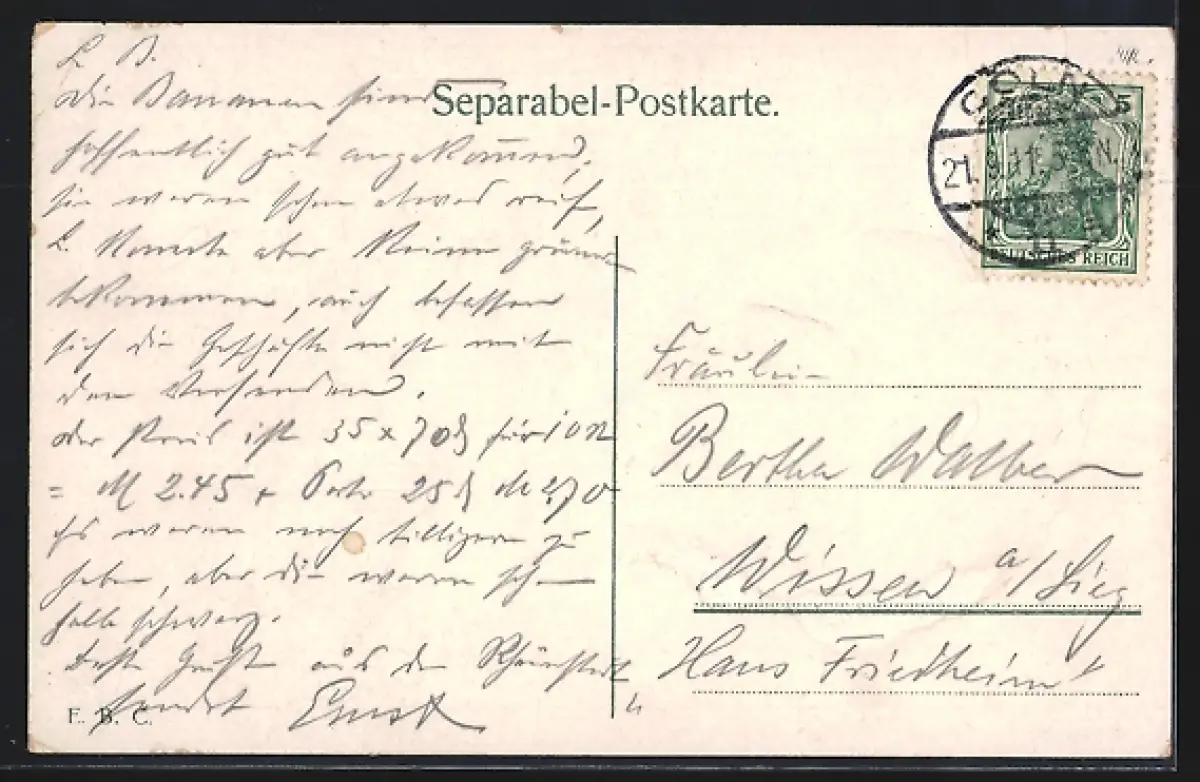 L. B.
Die Bananen sind
hoffentlich gut angekommen,
sie waren schon etwas reif,
L. konnte aber keine grünen
bekommen, auch befassen
sich die Geschäfte nicht mit
dem Versenden.
Der Preis ist 35 x 70 ₰ für 10
= M 2.45 + Porto 25 ₰ M 2,70
Es waren noch billigere zu
haben, aber die waren schon
halb schwarz.
Beste Grüße aus der
sendet Ernst
F. B. C.
Separabel-Postkarte.
CÖLN
21. 5-6 N.
5
DEUTSCHES REICH
Fräulein
Bertha Walber
Wissen a/Sieg
Haus Friedheim